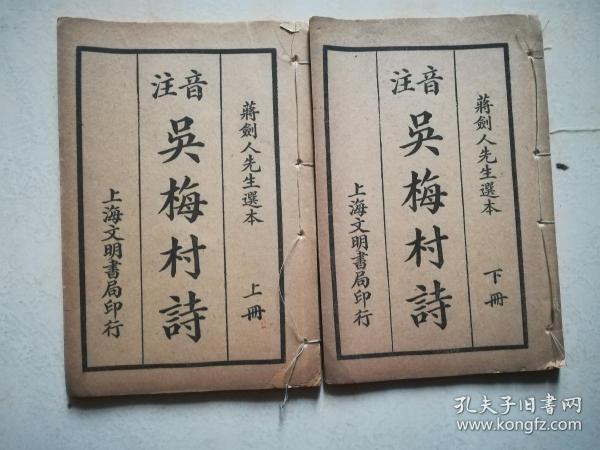 蔣劍人先生選本 上冊
音注
吳梅村詩
上海文明書局印行
蔣劍人先生選本 下冊
音注
吳梅村詩
上海文明書局印行
孔夫子旧书网
www.kongfz.com